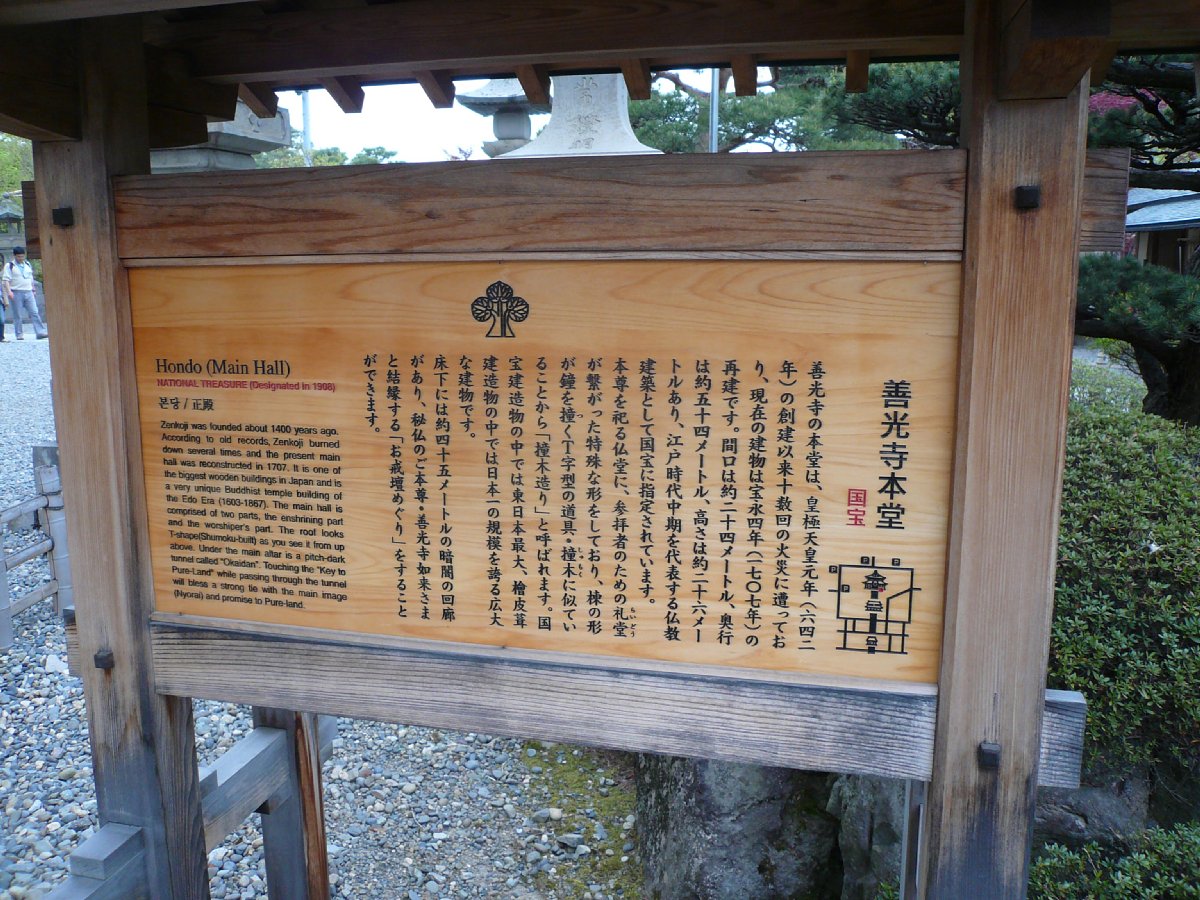 善光寺本堂
国宝
善光寺の本堂は、皇極天皇元年(六四二
年)の創建以来十数回の火災に遭ってお
り、現在の建物は宝永四年(一七〇七年)の
再建です。間口は約二十四メートル、奥行
は約五十四メートル、高さは約二十六メー
トルあり、江戸時代中期を代表する仏教
建築として国宝に指定されています。
本尊を祀る仏堂に、参拝者のための礼堂
らいどう
が繋がった特殊な形をしており、棟の形
が鐘を撞くT字型の道具・撞木に似てい
つ
しゅもく
ることから「撞木造り」と呼ばれます。国
宝建造物の中では東日本最大、檜皮葺
建造物の中では日本一の規模を誇る広大
な建物です。
床下には約四十五メートルの暗闇の回廊
があり、秘仏のご本尊・善光寺如来さま
と結縁する「お戒壇めぐり」をすること
ができます。
Hondo (Main Hall)
NATIONAL TREASURE (Designated in 1908)
본당 / 正殿
Zenkoji was founded about 1400 years ago.
According to old records, Zenkoji burned
down several times and the present main
hall was reconstructed in 1707. It is one of
the biggest wooden buildings in Japan and is
a very unique Buddhist temple building of
the Edo Era (1603-1867). The main hall is
comprised of two parts, the enshrining part
and the worshiper's part. The roof looks
T-shape(Shumoku-built) as you see it from up
above. Under the main altar is a pitch-dark
tunnel called "Okaidan". Touching the "Key to
Pure-Land" while passing through the tunnel
will bless a strong tie with the main image
(Nyorai) and promise to Pure-land.